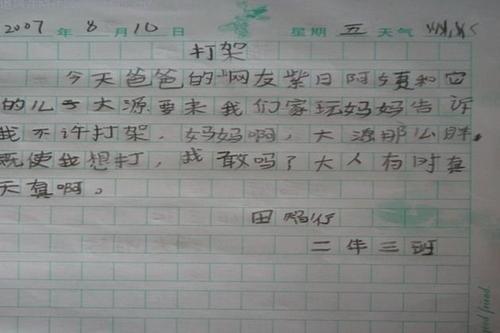 2007年8月10日 星期五天气
打架
今天爸爸的网友紫日阿姨和它
的儿子大源要来我们家玩妈妈告诉
我不许打架。妈妈啊,大源那么胖。
既使我想打,我敢吗?大人有时真
天真啊。
田
二年三班